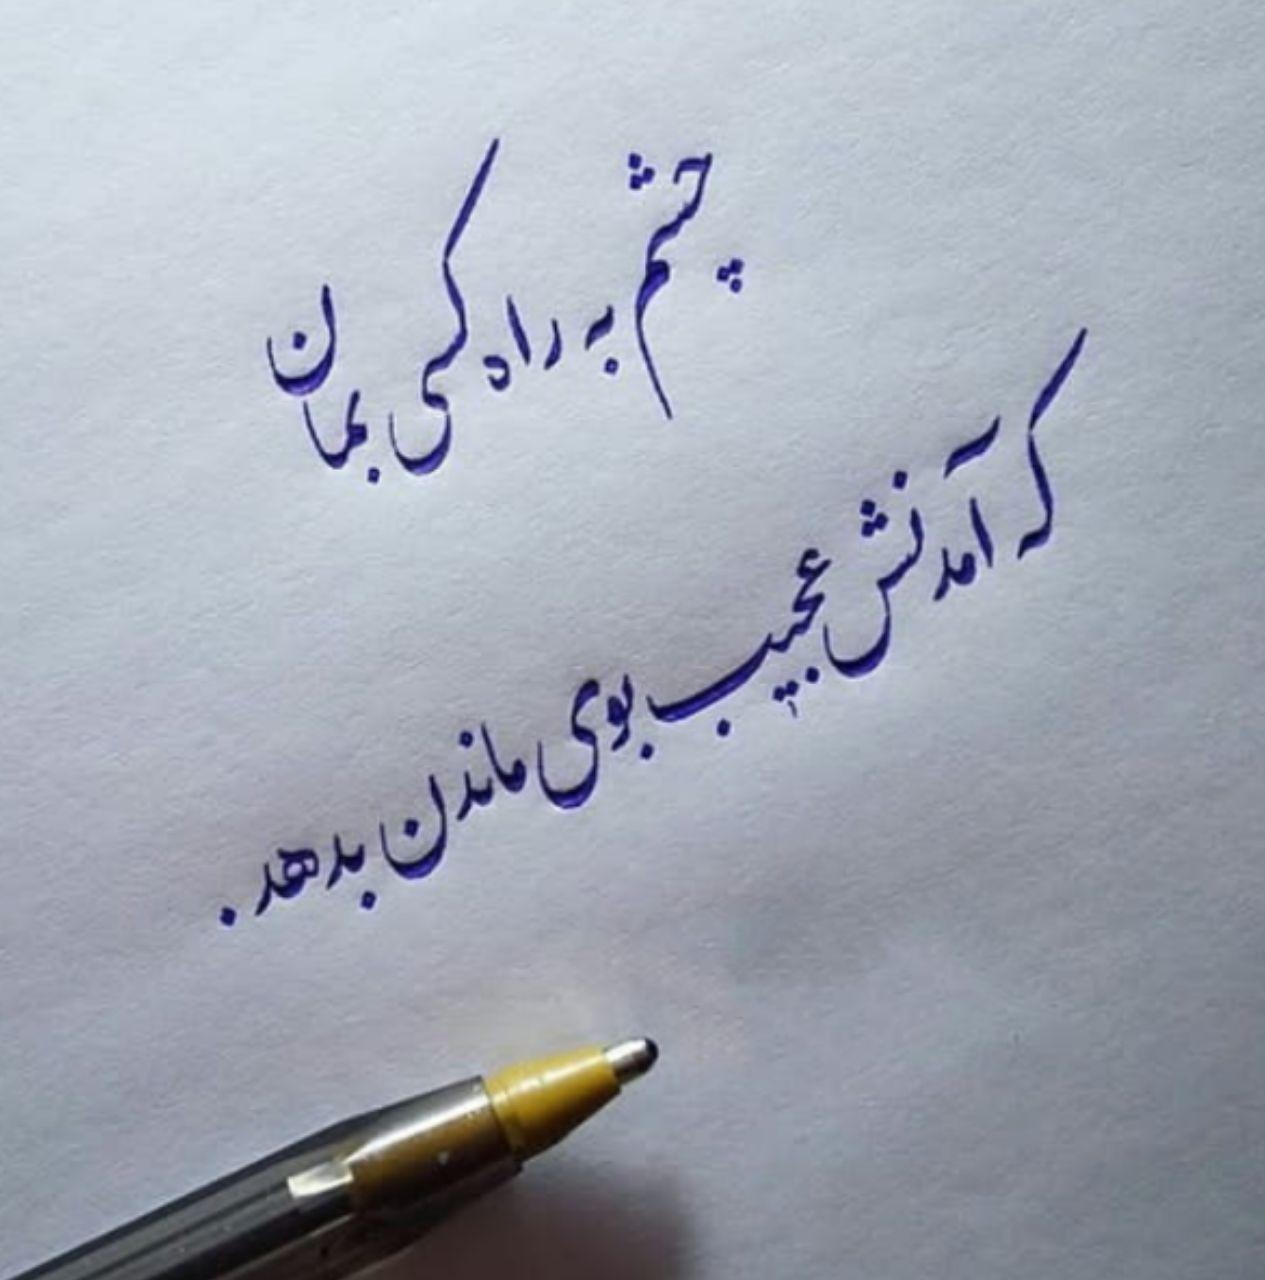 چشم به راه کسی بمان
که آمدنش عجیب بوی ماندن بدهد.